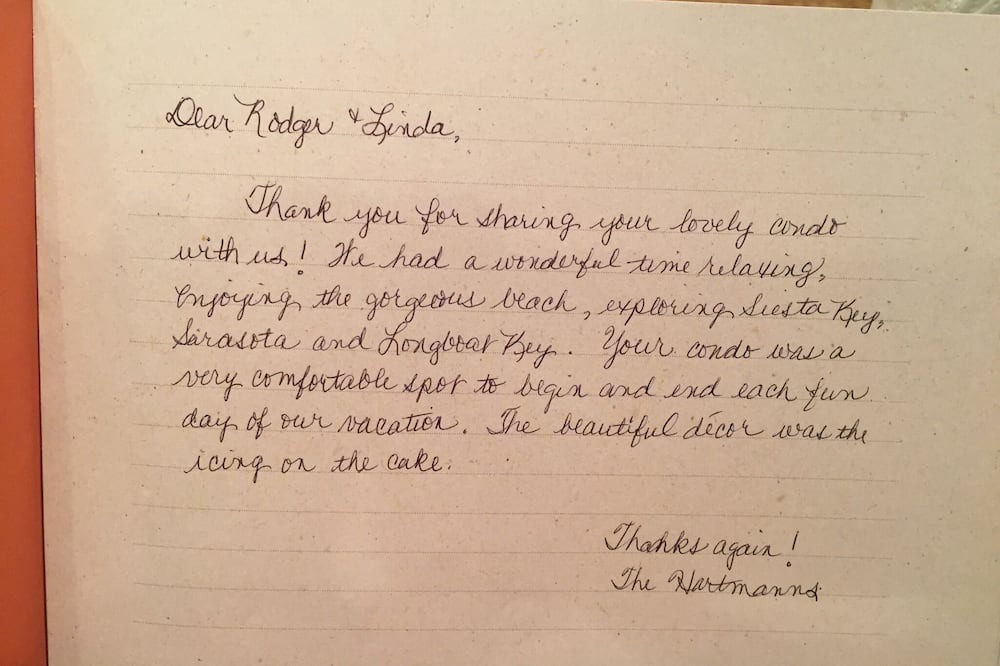 Dear Rodger & Linda,
Thank you for sharing your lovely condo
with us! We had a wonderful time relaxing,
enjoying the gorgeous beach, exploring Siesta Key,
Sarasota and Longboat Key. Your condo was a
very comfortable spot to begin and end each fun
day of our vacation. The beautiful décor was the
icing on the cake.
Thanks again!
The Hartmanns